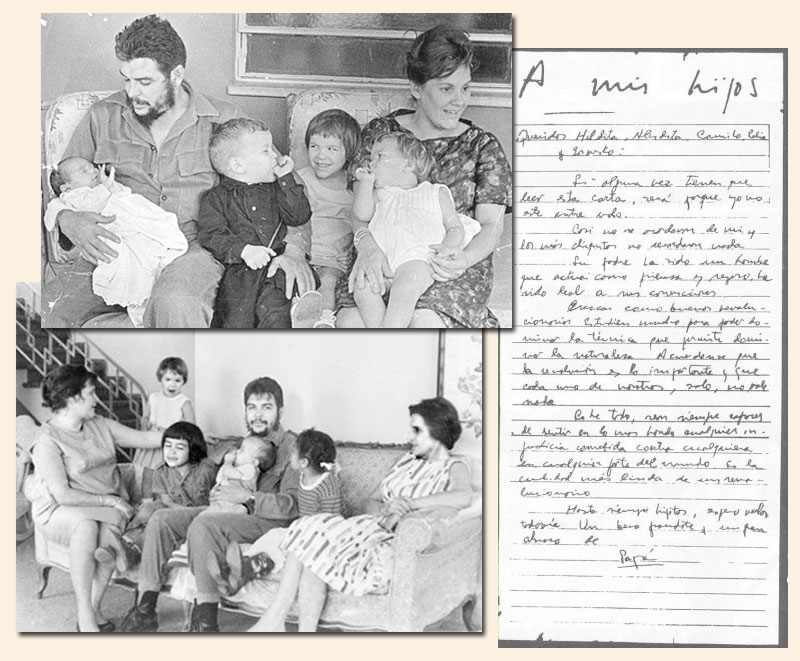 A mis hijos
Queridos Hildita, Aleidita, Camilo, Celia
y Ernesto:
Si alguna vez tienen que
leer esta carta, será porque yo no
esté entre uds.
Casi no se acordaran de mi y
los más chiquitos no recordaran nada
Su padre ha sido un hombre
que actúa como piensa y, seguro, ha
sido leal a sus convicciones
Crezcan como buenos revolu-
cionarios Estudien mucho para poder do-
minar la técnica que permite domi-
nar la naturaleza Acuerdense que
la revolución es lo importante y que
cada uno de nosotros, solo, no vale
nada
Sobre todo, sean siempre capaces
de sentir en lo mas hondo cualquier in-
justicia cometida contra cualquiera
en cualquier parte del mundo Es la
cualidad mas linda de un revo-
lucionario
Hasta siempre hijitos, espero verlos
todavía Un beso grandote y un gran
abrazo de
Papá